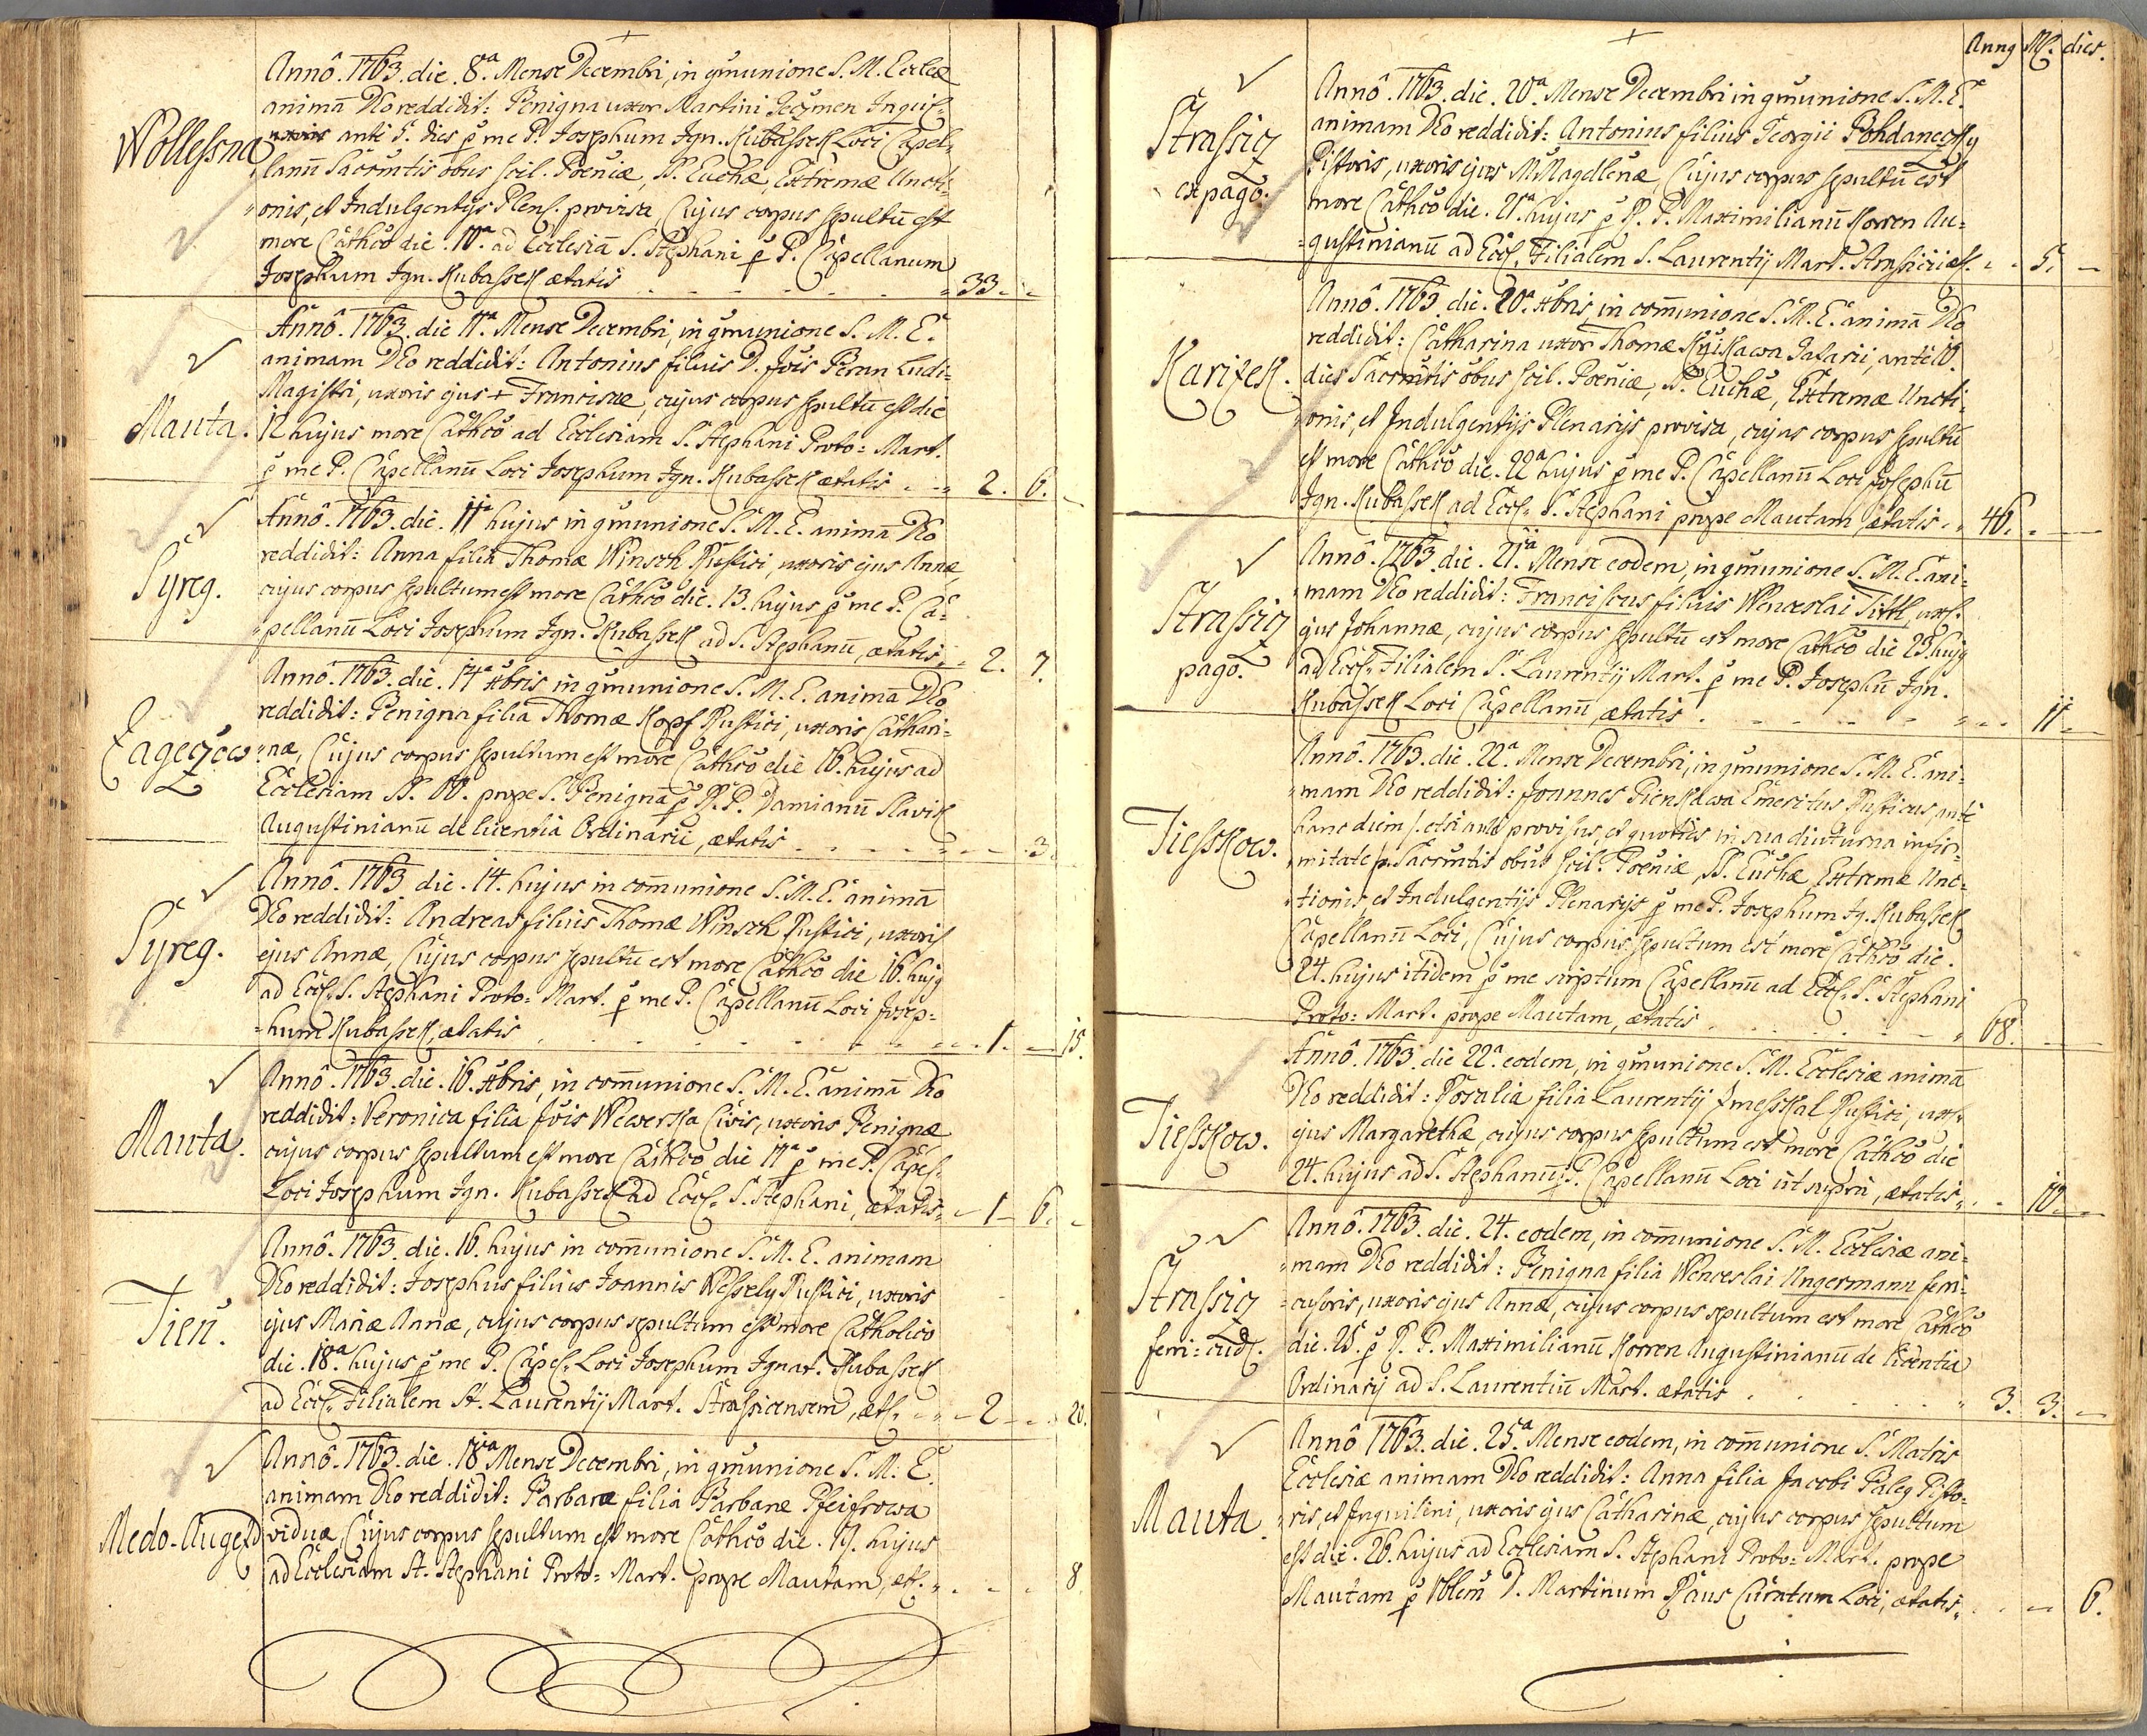 Wollessna
Annô. 1763. die. 8ª. Mense Decembri, in qmunione S. M. Eccleæ
animā Deo reddidit: Benigna uxor Martini Geczmen Inquil:
anti 5. dies p me P. Josephum Ign. Kubassek Loci Capel=
lanū Sacrmtis obus scil. Poeniæ, SS. Euchæ, Extremæ Uncti=
onis, et Indulgentijs Plens. provisa, Cujus corpus sepultū est
more Cathco die. 10ª. ad Ecclesiā S. Stephani p P. Capellanum
Josephum Ign. Kubassek ætatis 33.
Mauta.
Annô. 1763. die 11ª. Mense Decembri, in qmunione S. M. E.
animam Deo reddidit: Antonius filius D. Jois Beran Ludi=
Magistri, uxoris ejus + Franciscæ, cujus corpus sepultū est die
12 hujus more Cathco ad Ecclesiam S. Stephani Proto= Mart.
p me P. Capellanū Loci Josephum Ign. Kubassek ætatis 2. 6.
Syreg.
Annô. 1763. die. 11ª hujus in qmunione S. M. E. animā Deo
reddidit: Anna filia Thomæ Winsch Rustici, uxoris ejus Annæ,
cujus corpus sepultum est more Cathco die. 13. hujus p me P. Ca=
pellanū Loci Josephum Ign. Kubassek ad S. Stephanū, ætatis 2. 7.
Zageczow
Annô. 1763. die. 14ª Xbris in qmunione S. M. E. animā Deo
reddidit: Benigna filia Thomæ Kopf Rustici, uxoris Cathari=
næ, Cujus corpus sepultum est more Cathco die 16. hujus ad
Ecclesiam prope S. Benignā p R. P. Damianū Slavik
Augustinianū de licentia Ordinarii, ætatis 3.
Syreg.
Annô. 1763 die. 14. hujus in comunione S. M. E. animā
Deo reddidit: Andreas filius Thomæ Winsch Rustici, uxoris
ejus Annæ, Cujus corpus sepultū est more Cathco die 16. hujq
ad Eccl. S. Stephani Proto= Mart. p me P. Capellanū Loci Josep=
hum Kubassek, ætatis 1. 15.
Mauta.
Annô. 1763. die. 16. Xbris, in comunione S. M. E. animā Deo
reddidit: Veronica filia Jois Wewerka Civis, uxoris Benignæ
cujus corpus sepultum est more Cathco die 17ª p me P. Capel:
Loci Josephum Ign. Kubassek ad Eccl. S. Stephani, ætatis 1 6.
Tieñ.
Annô. 1763. die. 16. hujus in comunione S. M. E. animam
Deo reddidit: Josephus filius Joannis Wessely Rustici, uxoris
ejus Mariæ Annæ, cujus corpus sepultum est more Catholico
die. 18ª. hujus p me P. Capel. Loci Josephum Ignat. Kubassek
ad Eccl. Filialem St. Laurentij Mart. Strassicensem, æt. 2 20.
Medo-Augezd
Annô. 1763. die. 18ª Mense Decembri, in qmunione S. M. E.
animam Deo reddidit: Barbara filia Barbaræ Pfeifrowa
viduæ, Cujus corpus sepultum est more Cathco die. 19. hujus
ad Ecclesiam St. Stephani Proto= Mart. prope Mautam, æt. 8.
Annq M. dies.
Strassicz
ex pago.
Annô. 1763. die. 20ª. Mense Decembri in qmunione S. M. E.
animam Deo reddidit: Antonius filius Georgii Bohdaneczky
Pistoris, uxoris ejus M. Magdlenæ, Cujus corpus sepultū est
more Cathco die. 21ª. hujus p R. P. Maximilianū Korren Au=
gustinianū ad Eccl. Filialem S. Laurentij Mart. Strassicies. 5.
Karizek.
Annô. 1763. die. 20ª. Xbris, in comunione S. M. E. animā Deo
reddidit: Catharina uxor Thomæ Kyikawa Salarii, ante 10.
dies Sacrmtis obus scil. Poeniæ, SS. Euchæ, Extremæ Uncti=
onis, et Indulgentijs Plenarijs provisa, cujus corpus sepultū
est more Cathco die. 22ª hujus p me P. Capellanū Loci Josephū
Ign. Kubassek ad Eccl. S. Stephani prope Mautam, ætatis 46.
Strassicz
pago.
Annô. 1763. die. 21ª. Mense eodem, in qmunione S. M. E. ani=
mam Deo reddidit: Franciscus filius Wenceslai Tittl, uxs.
ejus Johannæ, cujus corpus sepultū est more Cathco die 23. hujq
ad Eccl. Filialem S. Laurentij Mart. p me P. Josephū Ign.
Kubassek Loci Capellanū, ætatis 11
Tiesskow.
Annô. 1763. die. 22ª. Mense Decembri, in qmunione S. M. E. ani=
mam Deo reddidit: Joannes Pienkawa Emeritus Rusticus, ante
hanc diem /: etsi ante provisus, et quoties in sua diuturna infir=
mitate :/ Sacrmtis obus scil. Poeniæ, SS. Euchæ Extremæ Unc=
tionis et Indulgentijs Plenarijs p me P. Josephum Ig. Kubassek
Capellanū Loci, Cujus corpus sepultum est more Cathco die.
24. hujus itidem p me scriptum Capellanū ad Eccl. S. Stephani
Proto= Mart. prope Mautam, ætatis 68.
Tiesskow.
Annô. 1763. die 22ª. eodem, in qmunione S. M. Ecclesiæ animā
Deo reddidit: Rosalia filia Laurentij Zmesskal Rustici, ux.
ejus Margarethæ, cujus corpus sepultum est more Cathco die
24. hujus ad S. Stephanū p P. Capellanū Loci ut supra, ætatis 10.
Strassicz
ferri=cud.
Annô. 1763. die. 24. eodem, in comunione S. M. Ecclesiæ ani=
mam Deo reddidit: Benigna filia Wenceslai Ungermann ferri=
cusoris, uxoris ejus Annæ, cujus corpus sepultum est more Cathco
die. 25. p R. P. Maximilianū Korren Augustinianū de licentia
Ordinarij ad S. Laurentiū Mart. ætatis 3. 3.
Mauta.
Annô 1763. die. 25ª. Mense eodem, in comunione S. Matris
Ecclesiæ animam Deo reddidit: Anna filia Jacobi Paleg Pisto=
ris, et Inquilini, uxoris ejus Catharinæ, cujus corpus sepultum
est die. 26. hujus ad Ecclesiam S. Stephani Proto= Mart. prope
Mautam p Noblem D. Martinum Paus Curatum Loci, ætatis 6.